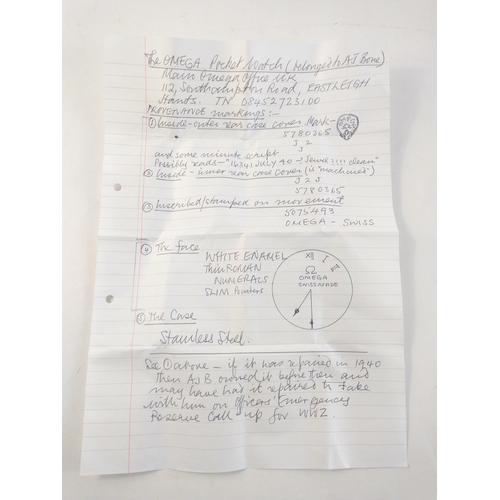 The OMEGA Pocket Watch (belonged to AJ Bone)
Main Omega Office UK
112, Southampton Road, EASTLEIGH
Hants. TN 08452723100
PROVENANCE markings:-
① Inside-outer rear case cover Mark-
5780365
J 2
J
and some minute script
Possibly reads - "16341 July 40 - Jewel ???? clean"
② Inside - inner rear case cover (is "machined")
J 2 J
5780365
③ Inscribed/stamped on movement
5075493
OMEGA - SWISS
④ The face
WHITE ENAMEL
Thin ROMAN
NUMERALS
SLIM Pointers
XII I II
Ω
OMEGA
SWISS MADE
⑤ The Case
Stainless Steel.
See ① above - if it was repaired in 1940
then AJB owned it before then and
may have had it repaired to take
with him on Officers' Emergency
Reserve Call up for WW2.